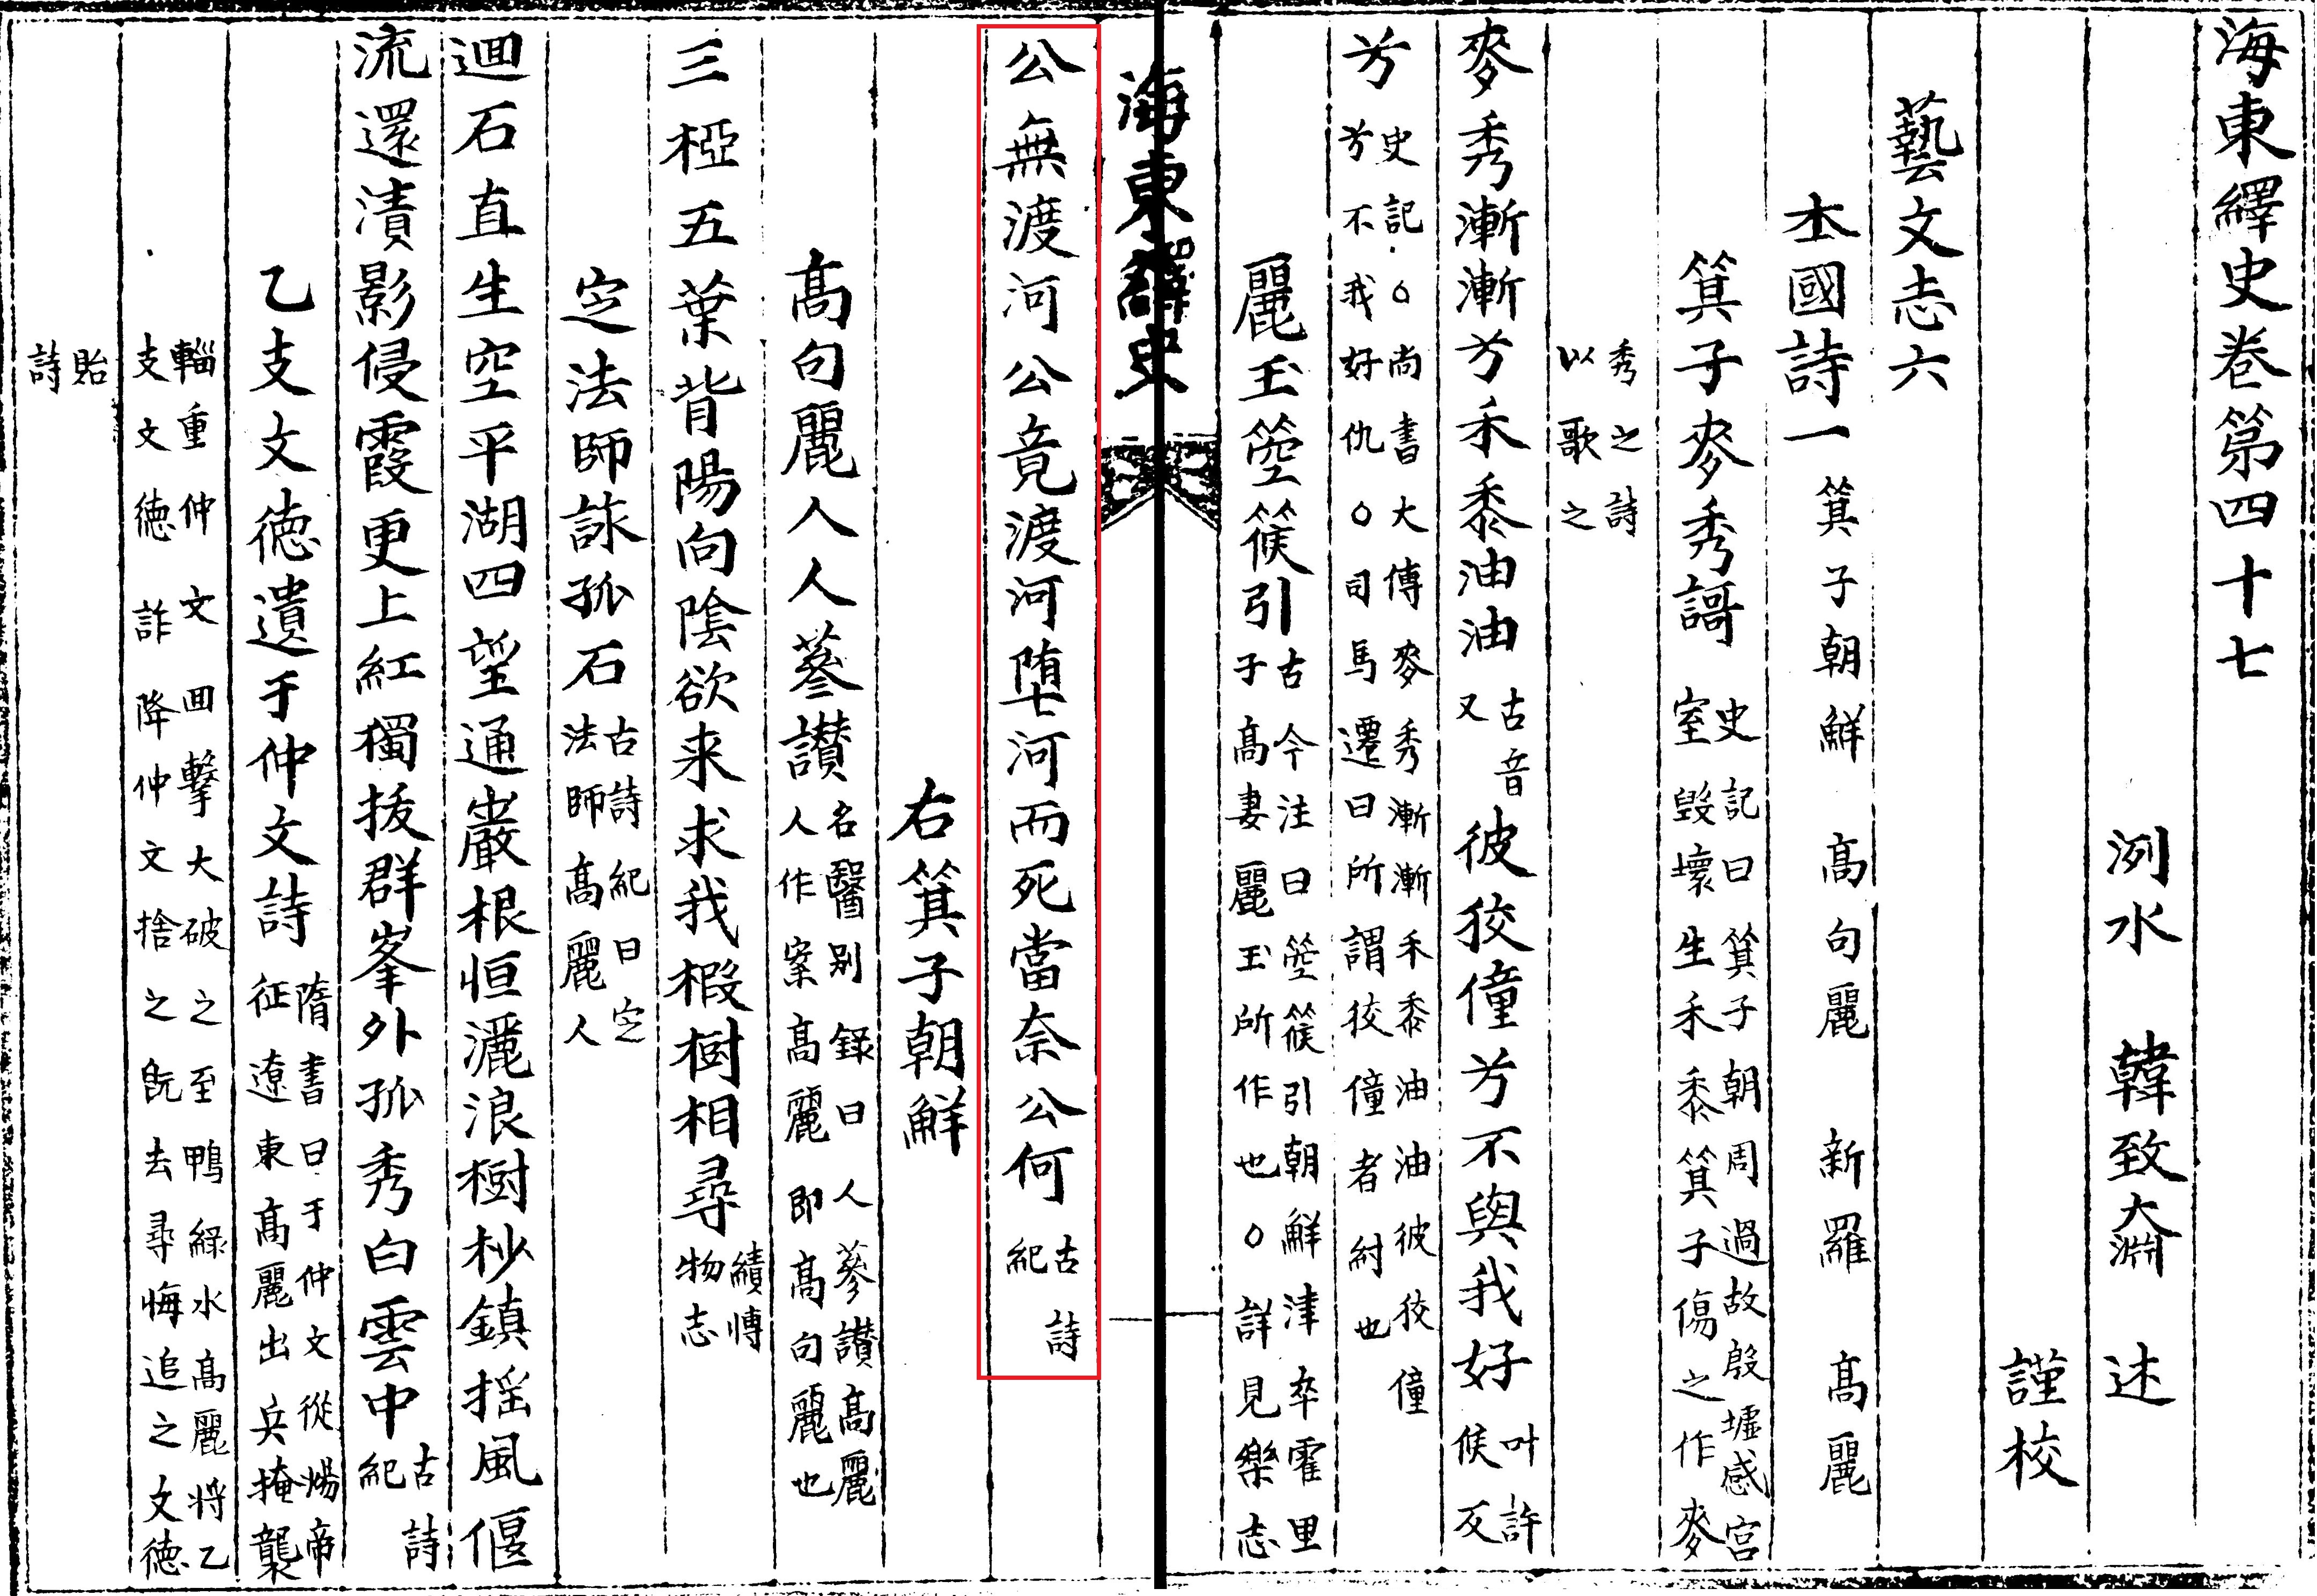 海東繹史卷第四十七
洌水 韓致奫 述
謹校
藝文志六
本國詩一 箕子朝鮮 高句麗 新羅 高麗
箕子麥秀謌 史記曰箕子朝周過故殷墟感宮
室毀壞生禾黍箕子傷之作麥
秀之詩
以歌之
麥秀漸漸兮禾黍油油 古音
又 彼狡僮兮不與我好 叶許
候反
兮 史記○尚書大傳麥秀漸漸禾黍油油彼狡僮
兮不我好仇○司馬遷曰所謂狡僮者紂也
麗玉箜篌引 古今注曰箜篌引朝鮮津卒霍里
子高妻麗玉所作也○詳見樂志
海東繹史
公無渡河公竟渡河墮河而死當奈公何 古詩
紀
右箕子朝鮮
高句麗人人蔘讃 名醫別錄曰人蔘讃高麗
人作案高麗即高句麗也
三椏五葉背陽向陰欲来求我椵樹相尋 續博
物志
定法師詠孤石 古詩紀曰定
法師高麗人
迴石直生空平湖四望通巖根恒灑浪樹杪鎮搖風偃
流還漬影侵霞更上紅獨拔群峯外孤秀白雲中 古詩
紀
乙支文徳遺于仲文詩 隋書曰于仲文從煬帝
征遼東高麗出兵掩襲
輜重仲文回擊大破之至鴨綠水高麗将乙
支文徳詐降仲文捨之既去尋悔追之文徳
貽
詩